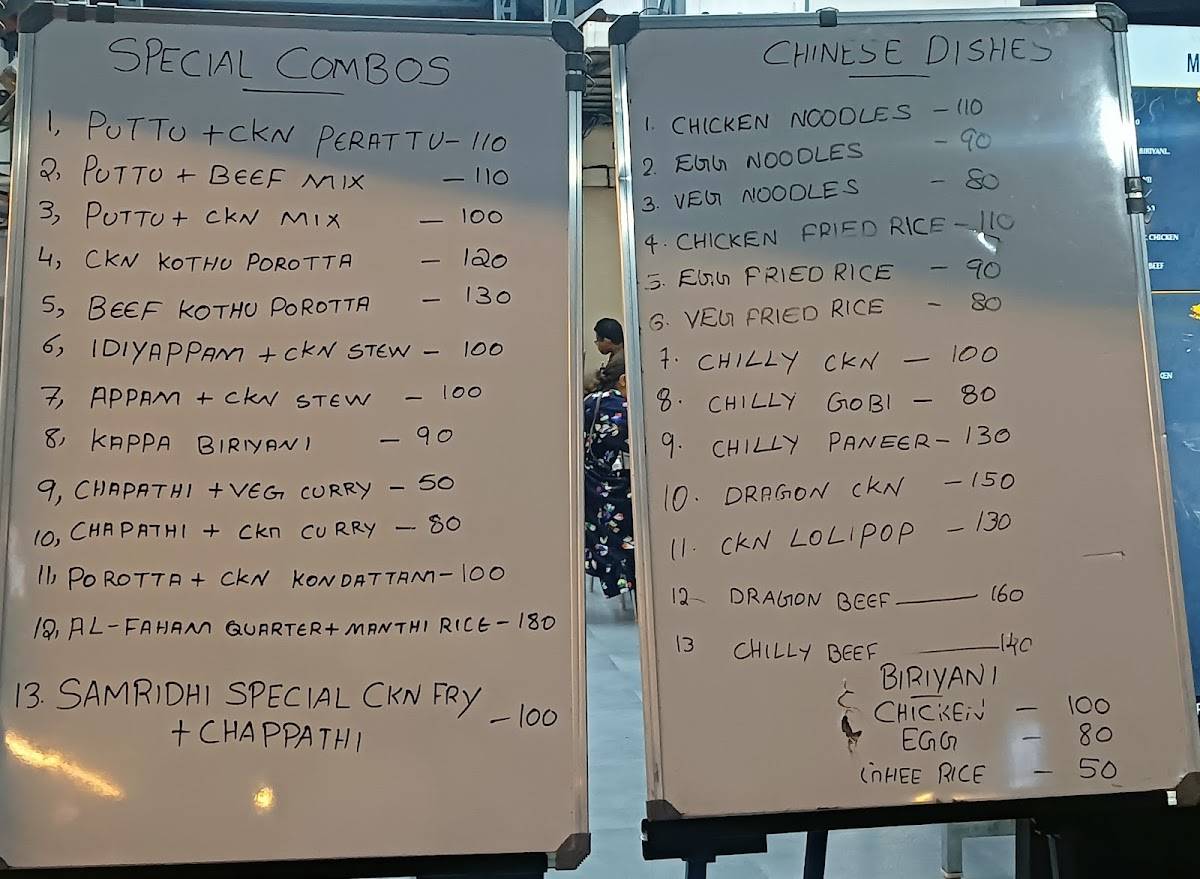 SPECIAL COMBOS
1, PUTTU + CKN PERATTU - 110
2, PUTTU + BEEF MIX - 110
3, PUTTU + CKN MIX - 100
4, CKN KOTHU POROTTA - 120
5, BEEF KOTHU POROTTA - 130
6, IDIYAPPAM + CKN STEW - 100
7, APPAM + CKN STEW - 100
8, KAPPA BIRIYANI - 90
9, CHAPATHI + VEG CURRY - 50
10, CHAPATHI + CKN CURRY - 80
11, POROTTA + CKN KONDATTAM - 100
12, AL-FAHAM QUARTER + MANTHI RICE - 180
13. SAMRIDHI SPECIAL CKN FRY
+ CHAPPATHI - 100
CHINESE DISHES
1. CHICKEN NOODLES - 110
2. EGG NOODLES - 90
3. VEG NOODLES - 80
4. CHICKEN FRIED RICE - 110
5. EGG FRIED RICE - 90
6. VEG FRIED RICE - 80
7. CHILLY CKN - 100
8. CHILLY GOBI - 80
9. CHILLY PANEER - 130
10. DRAGON CKN - 150
11. CKN LOLIPOP - 130
12 DRAGON BEEF - 160
13 CHILLY BEEF - 140
BIRIYANI
CHICKEN - 100
EGG - 80
GHEE RICE - 50
M
BIRIYANI
CHICKEN
BEEF